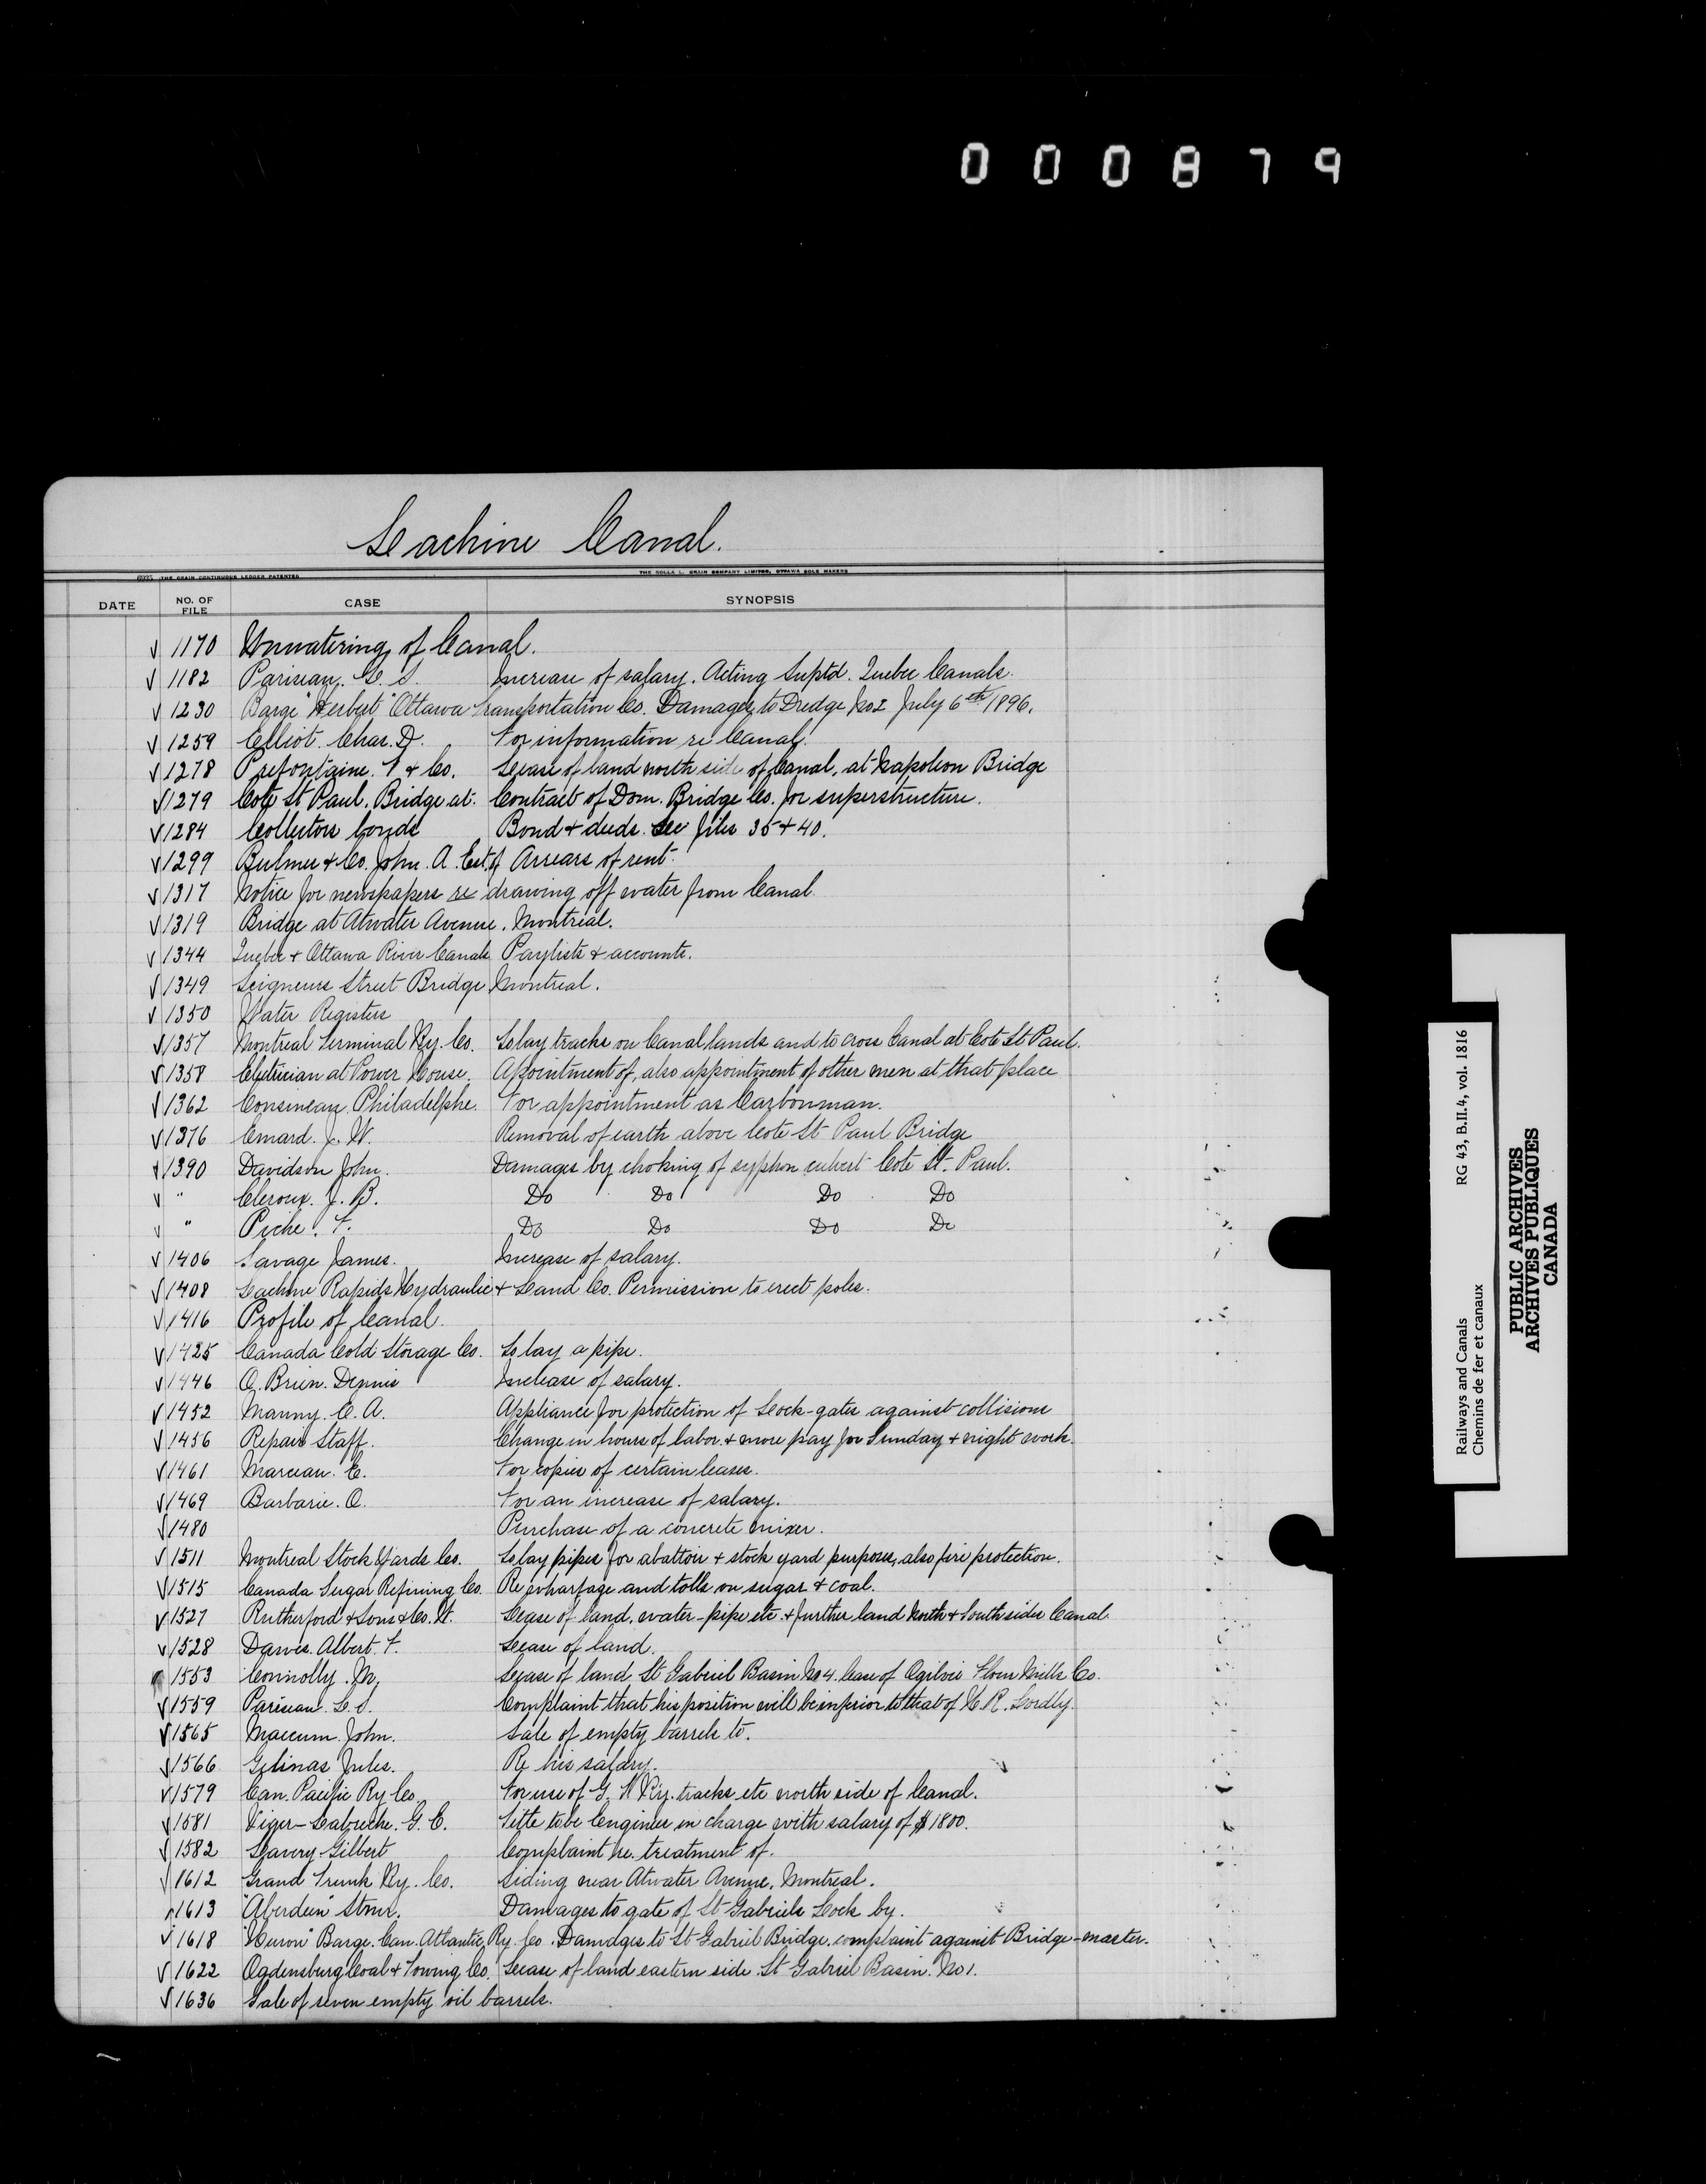 000879
Lachine Canal.
6095 THE CRAIN CONTINUOUS LEDGER PATENTED THE ROLLA L. CRAIN COMPANY LIMITED, OTTAWA SOLE MAKERS
DATE NO. OF FILE CASE SYNOPSIS
√ 1170 Unwatering of Canal.
√ 1182 Pariseau. L. S. Increase of salary. Acting Suptd. Quebec Canals.
√ 1230 Barge "Herbert" Ottawa Transportation Co. Damages to Dredge No 2 July 6th 1896.
√ 1259 Elliot. Chas. D. For information re Canals.
√ 1278 Prefontaine. T & Co. Lease of land north side of Canal, at Napoleon Bridge
√ 1279 Cote St Paul. Bridge at. Contract of Dom. Bridge Co. for superstructure.
√ 1284 Collectors bonds Bond & deeds. See files 35 & 40.
√ 1299 Bulmer & Co. John. A. Est. of Arrears of rent.
√ 1317 Notice for newspapers re drawing off water from Canal.
√ 1319 Bridge at Atwater Avenue, Montreal.
√ 1344 Quebec & Ottawa River Canals Paylists & accounts.
√ 1349 Seigneurs Street Bridge Montreal.
√ 1350 Water Registers
√ 1357 Montreal Terminal Ry. Co. To lay tracks on Canal lands and to cross Canal at Cote St Paul.
√ 1358 Electrician at Power House. Appointment of, also appointment of other men at that place
√ 1362 Cousineau. Philadelphe. For appointment as Carbonman.
√ 1376 Emard. J. W. Removal of earth above Cote St Paul Bridge
√ 1390 Davidson John. Damages by choking of syphon culvert Cote St. Paul.
√ " Cleroux. J. B. Do Do Do Do
√ " Piche. F. Do Do Do Do
√ 1406 Savage James. Increase of salary.
√ 1408 Lachine Rapids Hydraulic & Land Co. Permission to erect poles.
√ 1416 Profile of Canal.
√ 1425 Canada Cold Storage Co. To lay a pipe.
√ 1446 O'Brien. Dennis Increase of salary.
√ 1452 Manny. C. A. Appliance for protection of Lock-gates against collisions
√ 1456 Repairs Staff. Change in hours of labor & more pay for Sunday & night work.
√ 1461 Marceau. E. For copies of certain leases.
√ 1469 Barbarie. O. For an increase of salary.
√ 1480 Purchase of a concrete mixer.
√ 1511 Montreal Stock Yards Co. To lay pipes for abattoir & stock yard purposes, also fire protection.
√ 1515 Canada Sugar Refining Co. Re wharfage and tolls on sugar & coal.
√ 1527 Rutherford & Sons & Co. W. Lease of land, water-pipe etc. & further land North & South sides Canal.
√ 1528 Dawes. Albert. F. Lease of land.
1553 Connolly. M. Lease of land St Gabriel Basin No 4. lease of Ogilvie Flour Mills Co.
√ 1559 Pariseau. L. S. Complaint that his position will be inferior to that of H. R. Lordly.
√ 1565 Marcum. John. Sale of empty barrels to.
√ 1566 Gelinas Jules. Re his salary. √
√ 1579 Can. Pacific Ry Co. For use of G. T. Ry. tracks etc north side of Canal.
√ 1581 Viger-Labreche. G. E. Title to be Engineer in charge with salary of $1800.
√ 1582 Slavery Gilbert Complaint re. treatment of.
√ 1612 Grand Trunk Ry. Co. Siding near Atwater Avenue, Montreal.
√ 1613 "Aberdeen" Stmr. Damages to gate of St Gabriels Lock by.
√ 1618 "Huron" Barge. Can. Atlantic Ry. Co. Damages to St Gabriel Bridge. complaint against Bridge-master.
√ 1622 Ogdensburg Coal & Towing Co. Lease of land eastern side St Gabriel Basin. No 1.
√ 1636 Sale of seven empty oil barrels.
Railways and Canals RG 43, B.II.4, vol. 1816
Chemins de fer et canaux
PUBLIC ARCHIVES
ARCHIVES PUBLIQUES
CANADA